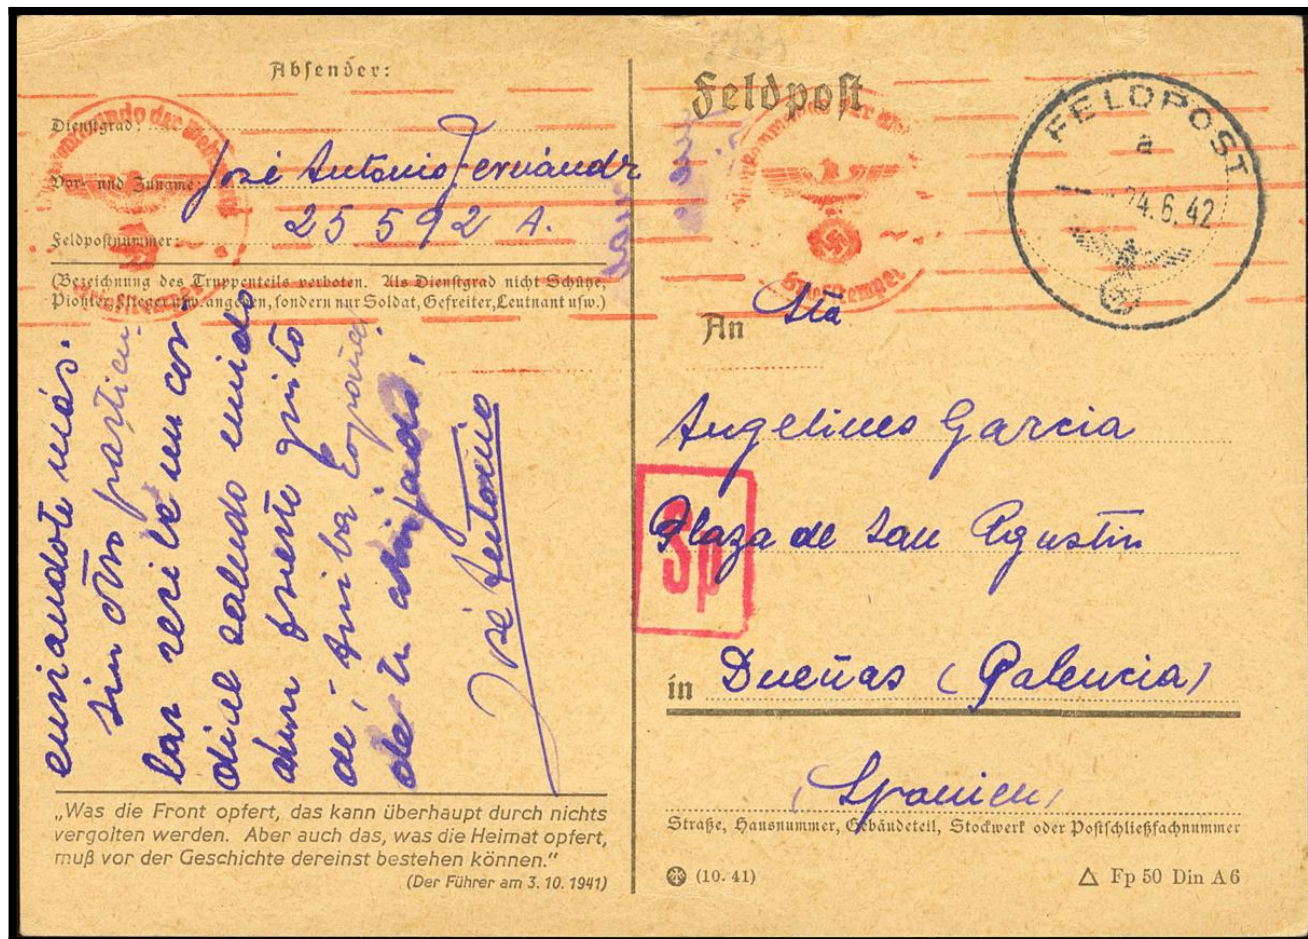 Absender:
Dienstgrad:
Vor- und Zuname: José Antonio Fernandz
Feldpostnummer: 25592 A.
(Bezeichnung des Truppenteils verboten. Als Dienstgrad nicht Schütze,
Pionier, Flieger usw. angeben, sondern nur Soldat, Gefreiter, Leutnant usw.)
enviandote más.
Sin otro particu-
lar recibe un cor-
dial saludo unido
a un fuerte grito
de ¡Arriba España!
de tu ahijado,
José Antonio
„Was die Front opfert, das kann überhaupt durch nichts
vergolten werden. Aber auch das, was die Heimat opfert,
muß vor der Geschichte dereinst bestehen können.“
(Der Führer am 3. 10. 1941)
Feldpost
FELDPOST
a
24.6.42
Briefstempel
An Sta
Angelines Garcia
Plaza de San Agustin
Sp
in Dueñas (Palencia)
(Spanien)
Straße, Hausnummer, Gebäudeteil, Stockwerk oder Postschließfachnummer
(10. 41)
Fp 50 Din A6